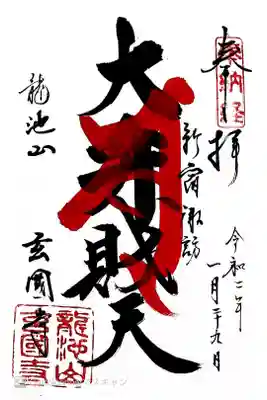 奉拝
奉納経
新宿諏訪
令和二年
一月二十九日
大弁財天
龍池山
玄國寺
龍池山
玄國寺